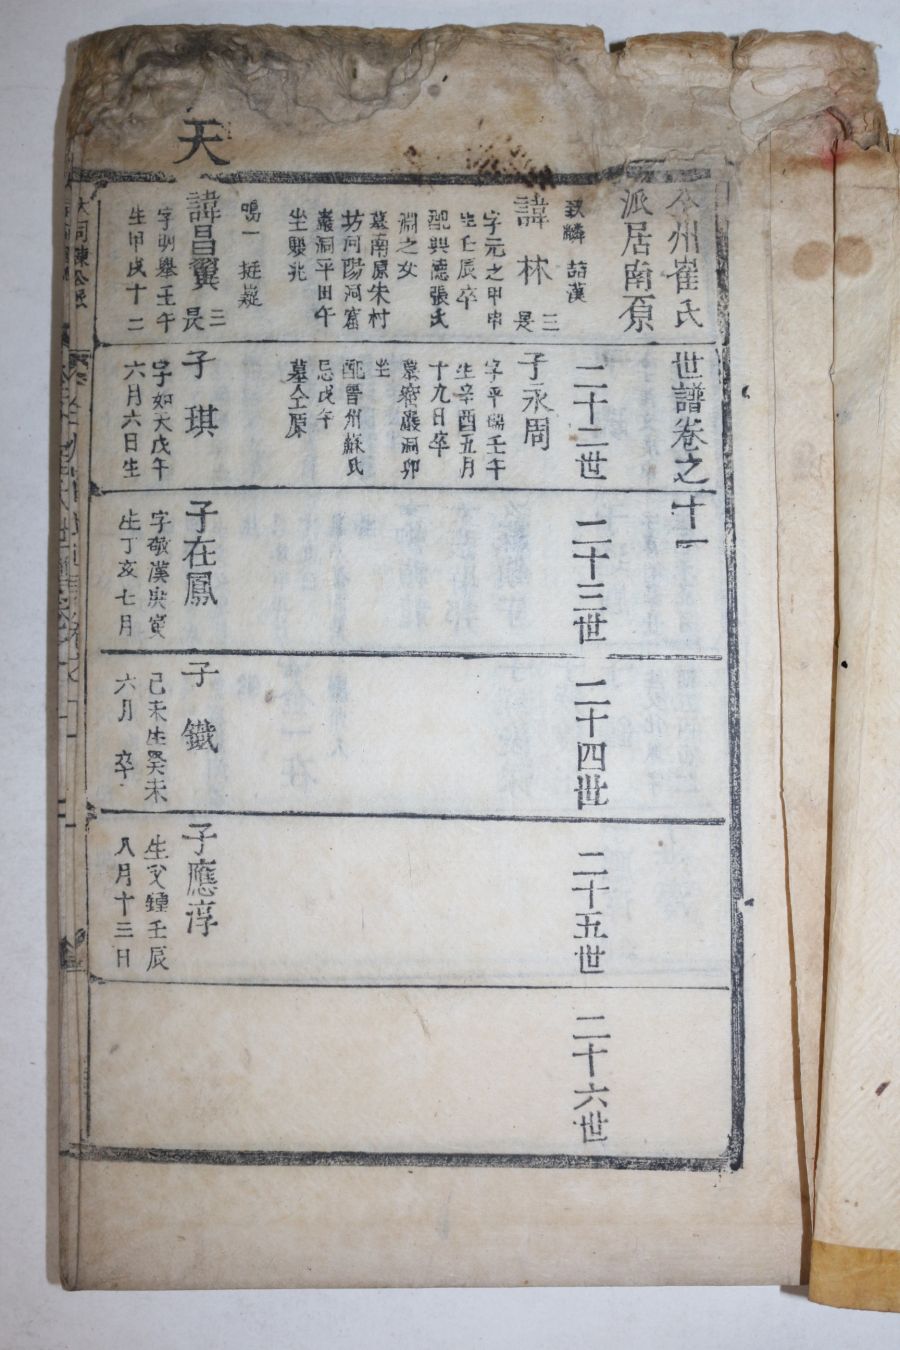 天
全州崔氏世譜卷之十一
派居南原
二十二世
二十三世
二十四世
二十五世
二十六世
諱林 是三
字元之甲申
生壬辰卒
配興德張氏
淵之女
墓南原朱村
坊河陽洞窟
巖洞平田午
坐
子永周
字平瑞壬午
生辛酉五月
十九日卒
墓窟巖洞卯
坐
配晉州蘇氏
忌戊午
墓仝原
鳴一 挺嶷
諱昌翼 是三
字明擧壬午
生甲戌十二
子琪
字如天戊午
六月六日生
子在鳳
字敬漢庚寅
生丁亥七月
子鐵
己未生癸未
六月 卒
子應淳
生父鍾壬辰
八月十三日